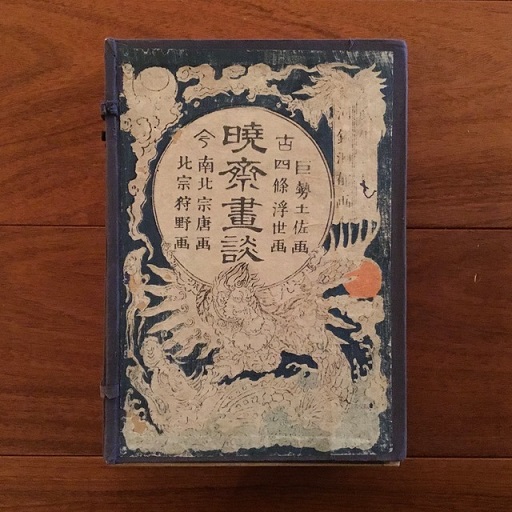 巨勢土佐画
古四條浮世画
曉斎畫談
今南北宗唐画
北宗狩野画